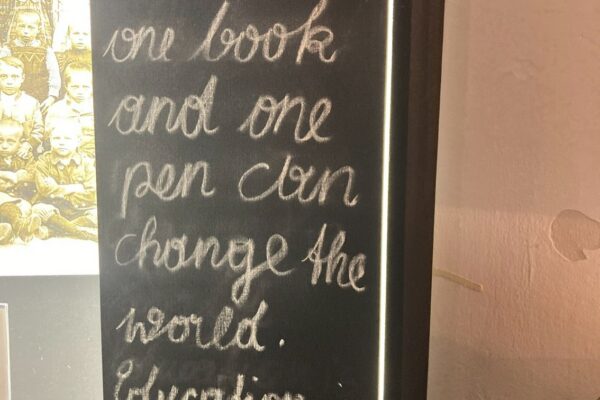 one book
and one
pen can
change the
world.
Education